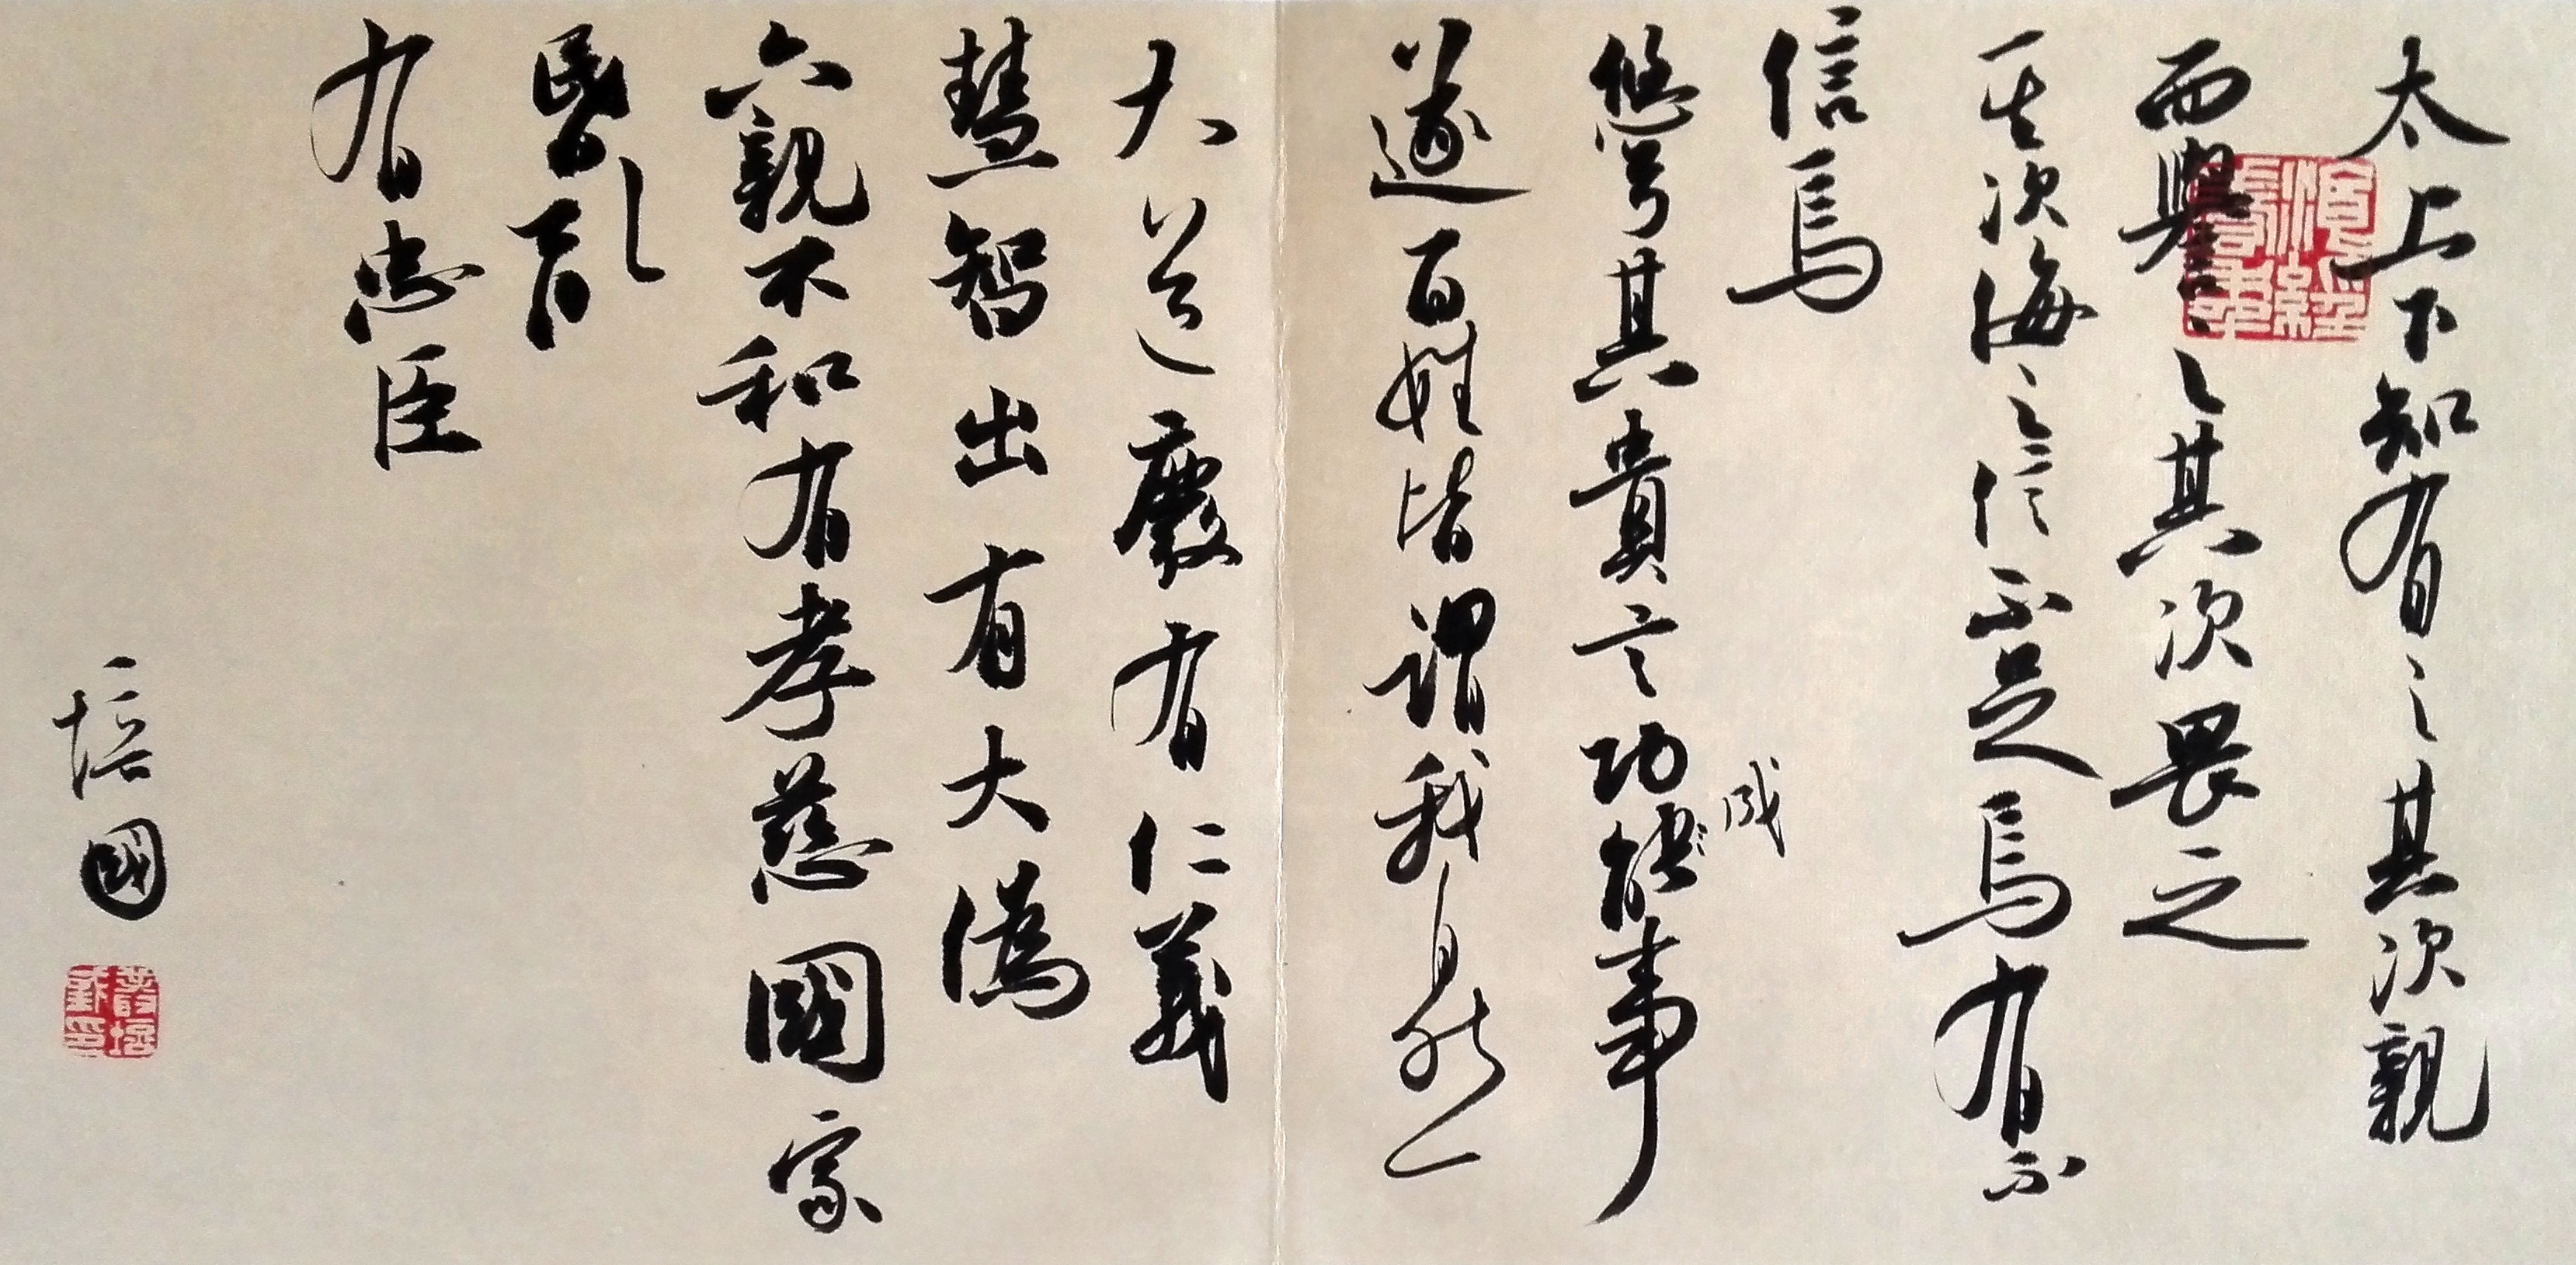 太上下知有之其次親
而譽之其次畏之
其次侮之信不足焉有不
信焉
悠兮其貴言功能事
成
遂百姓皆謂我自然
大道廢有仁義
慧智出有大偽
六親不和有孝慈國家
昬亂
有忠臣
培國